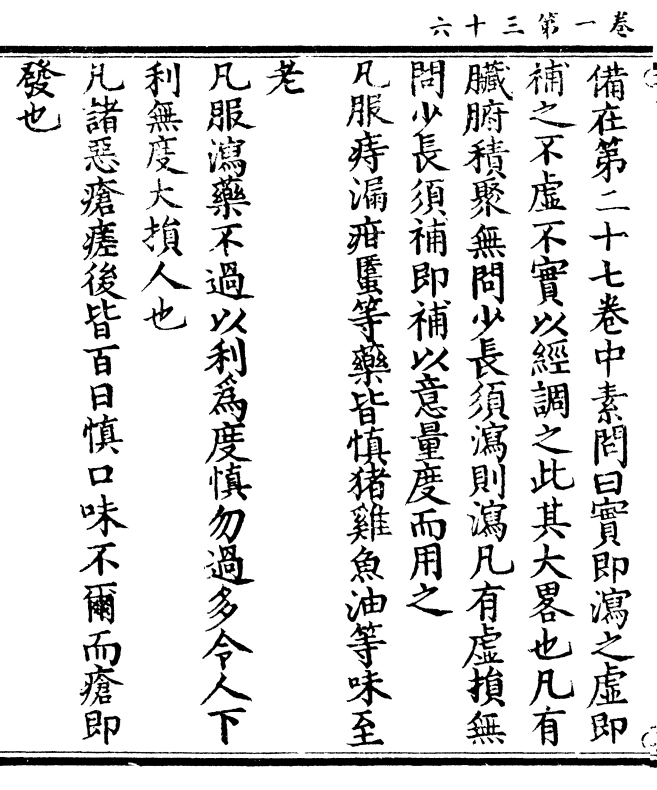 卷一第三十六
備在第二十七卷中素問曰實即瀉之虛即
補之不虛不實以經調之此其大畧也凡有
臟腑積聚無問少長須瀉則瀉凡有虛損無
問少長須補即補以意量度而用之
凡服痔漏疳䘌等藥皆慎猪雞魚油等味至
老
凡服瀉藥不過以利爲度慎勿過多令人下
利無度大損人也
凡諸惡瘡瘥後皆百日慎口味不爾而瘡即
發也